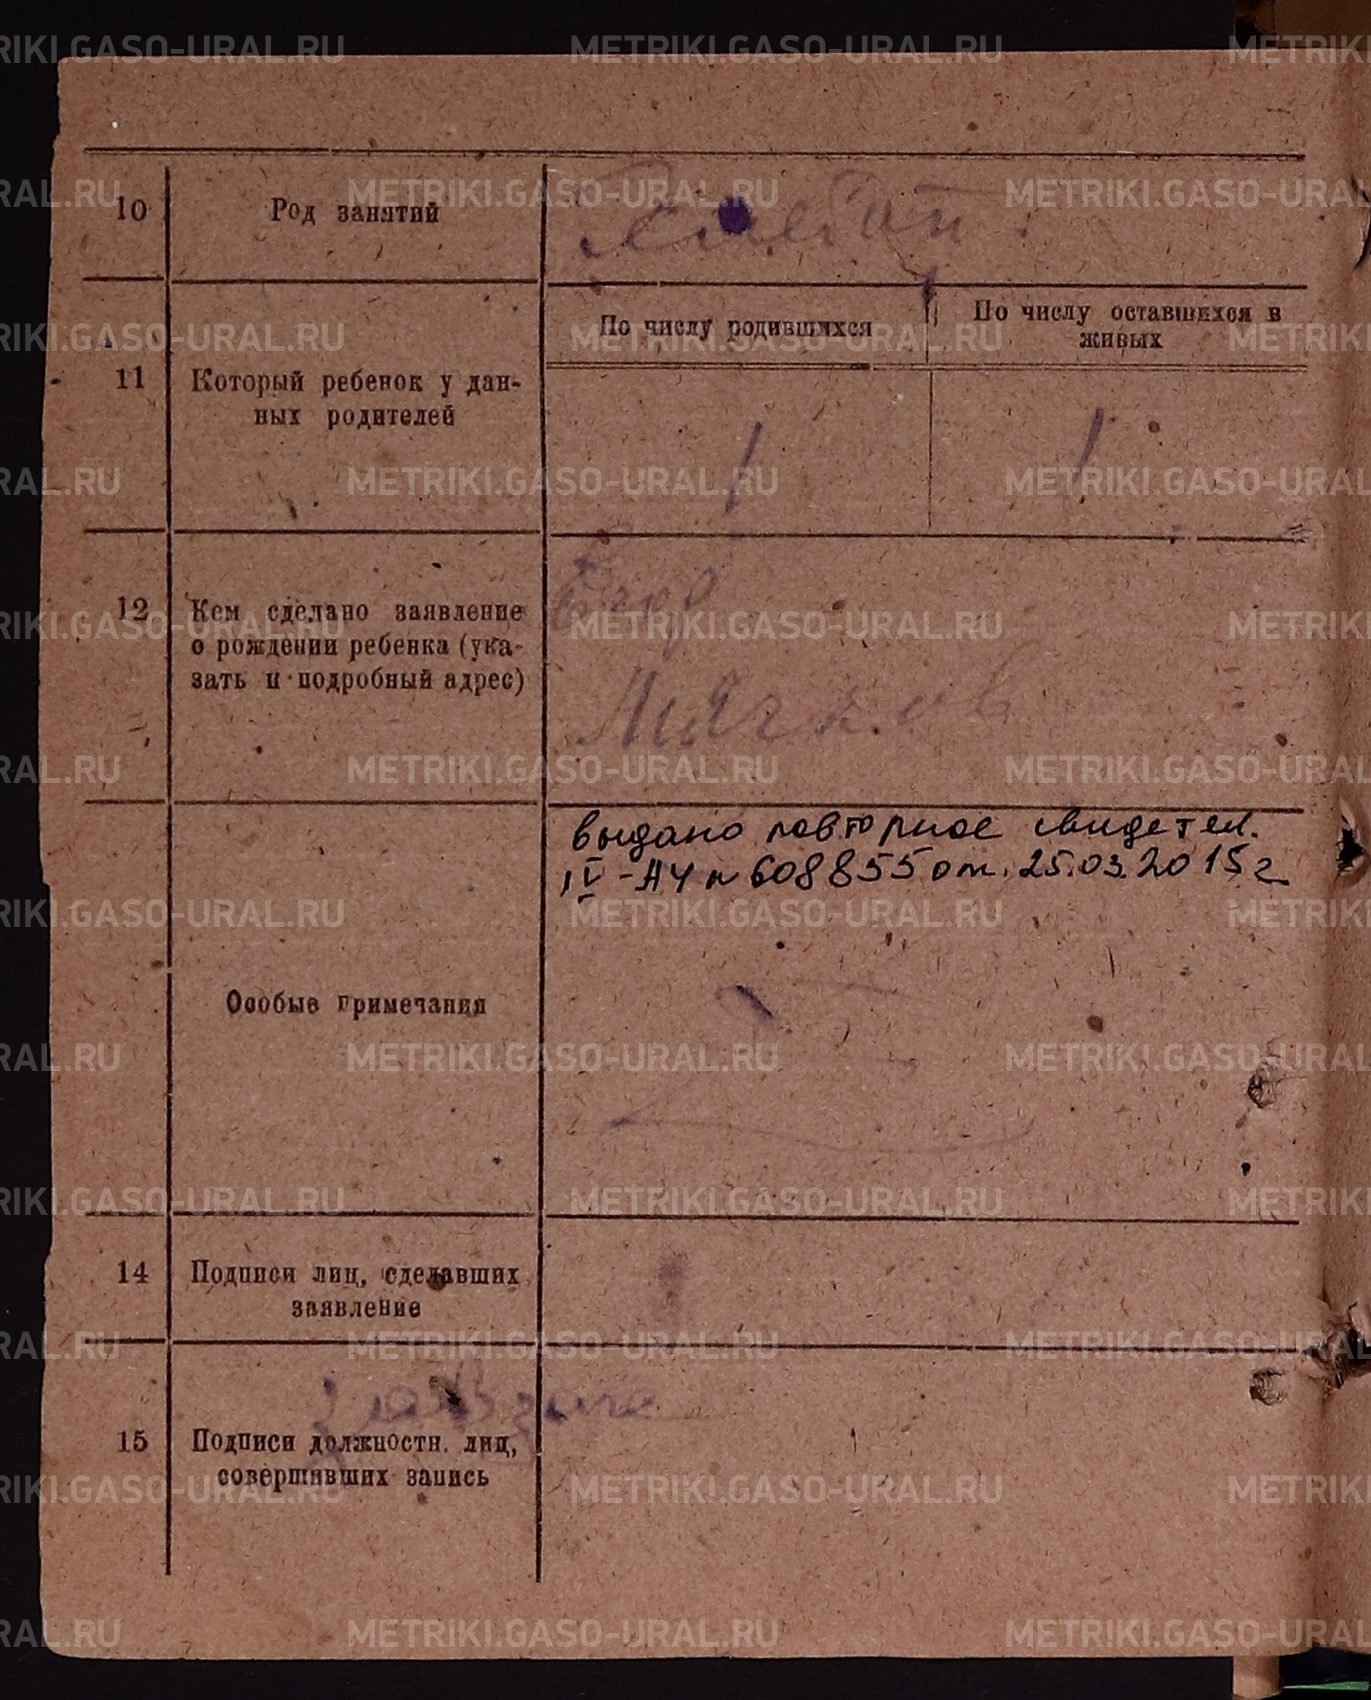 METRIKI.GASO-URAL.RU
10
Род занятий
11
Который ребенок у дан-
ных родителей
По числу родившихся
По числу оставшихся в
живых
1
1
12
Кем сделано заявление
о рождении ребенка (ука-
зать и подробный адрес)
Мячков
Особые примечания
выдано повторное свидетел.
IV-АЧ № 608855 от. 25.03.2015г
14
Подписи лиц, сделавших
заявление
15
Подписи должностн. лиц,
совершивших запись